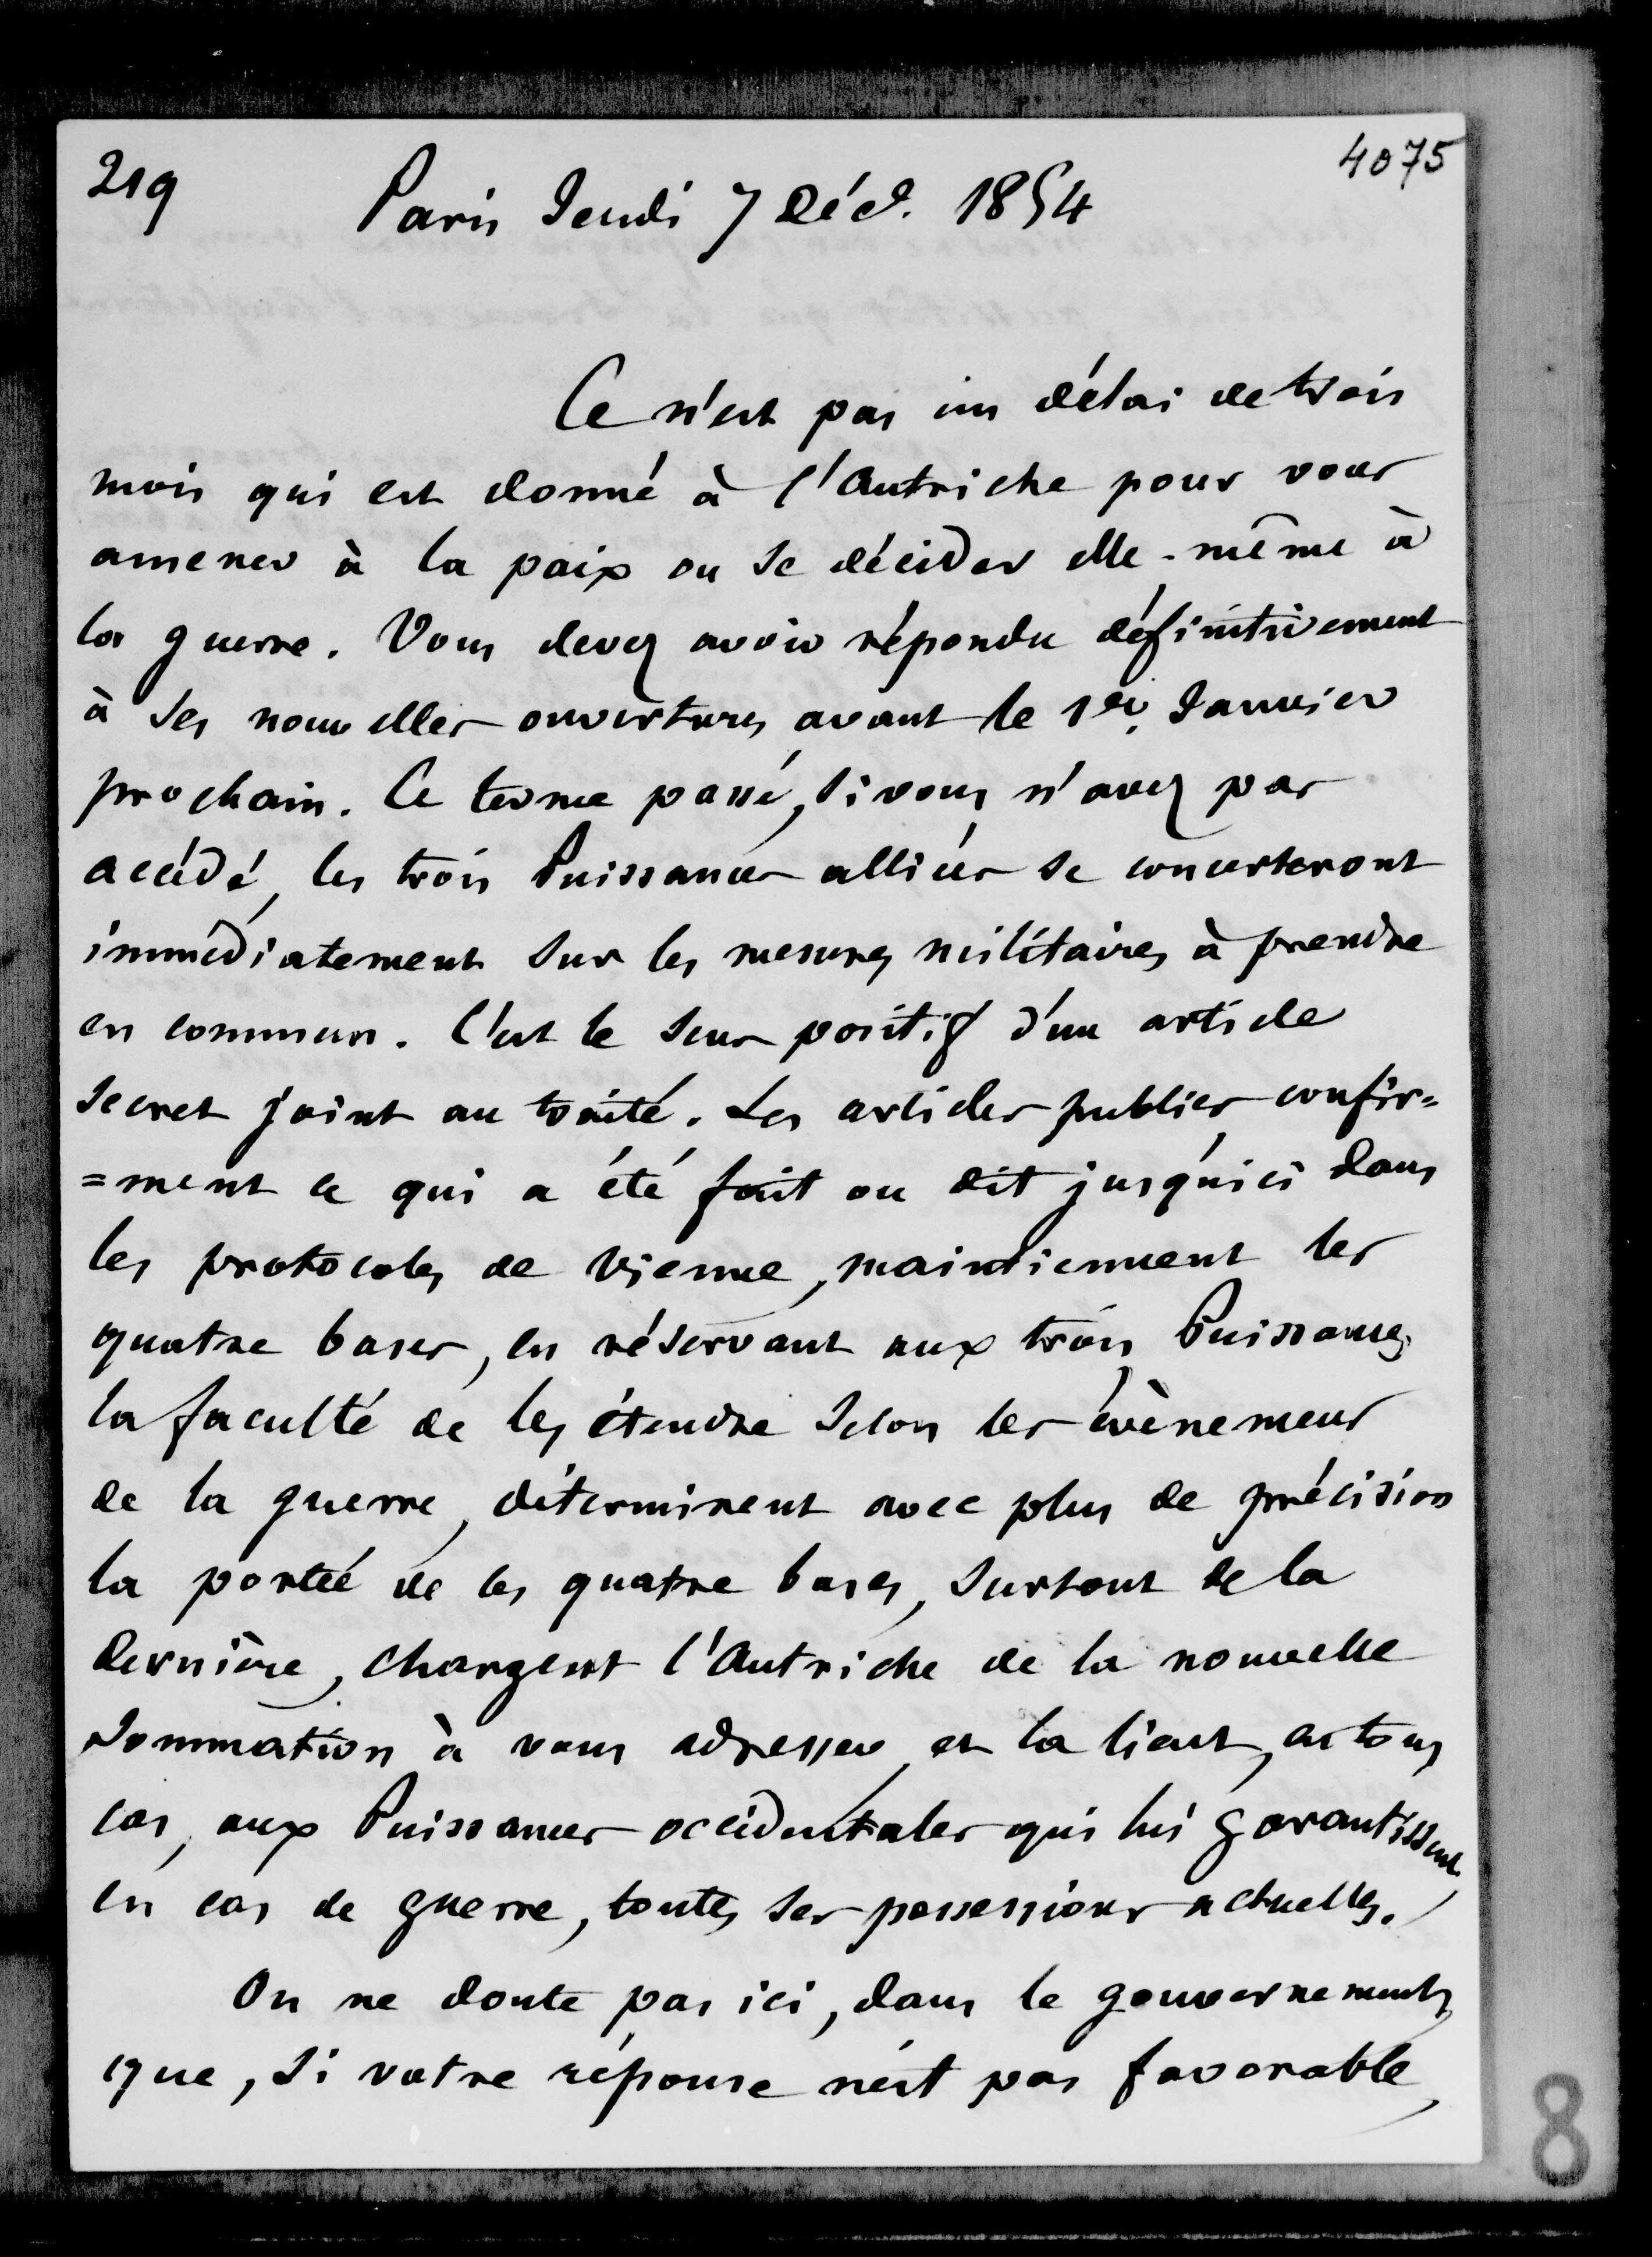 219
4075
Paris Jeudi 7 Déc. 1854
Ce n'est pas un délai de trois
mois qui est donné à l'Autriche pour vous
amener à la paix ou se décider elle-même à
la guerre. Vous devez avoir répondu définitivement
à ses nouvelles ouvertures avant le 1er. Janvier
prochain. Ce terme passé, si vous n'avez pas
accédé, les trois Puissances alliées se concerteront
immédiatement sur les mesures militaires à prendre
en commun. C'est le sens positif d'un article
secret joint au traité. Les articles publics confir=
=ment ce qui a été fait ou dit jusqu'ici dans
les protocoles de Vienne, maintiennent les
quatre bases, en réservant aux trois Puissances
la faculté de les étendre selon les évènemens
de la guerre, déterminent avec plus de précision
la portée de ces quatre bases, surtout de la
dernière, chargent l'Autriche de la nouvelle
sommation à vous adresser et la lient, en tous
cas, aux Puissances occidentales qui lui garantissent,
en cas de guerre, toutes ses possessions actuelles.
On ne doute pas ici, dans le gouvernement,
que, si votre réponse n'est pas favorable,
8